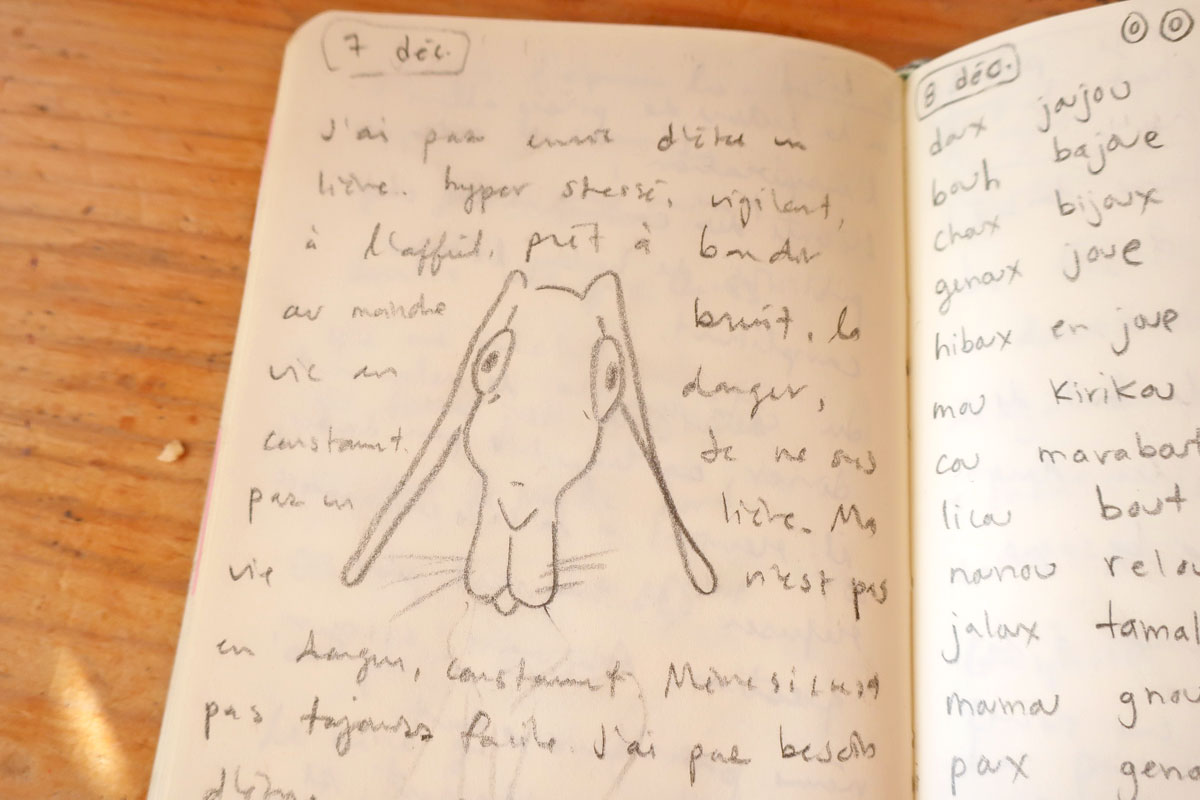 7 déc.
J'ai pas envie d'être un
lièvre. hyper stressé, vigilant,
à l'affût. prêt à bondir
au moindre bruit. la
vie en danger,
constant. Je ne suis
pas un lièvre. Ma
vie n'est pas
en danger, constant. Même si c'est
pas toujours facile. J'ai pas besoin
d'être
8 déc.
doux joujou
bouh bajoue
choux bijoux
genoux joue
hiboux en joue
mou Kirikou
cou marabout
licou bout
nounou relou
jaloux tamal
mamou gnou
poux geno